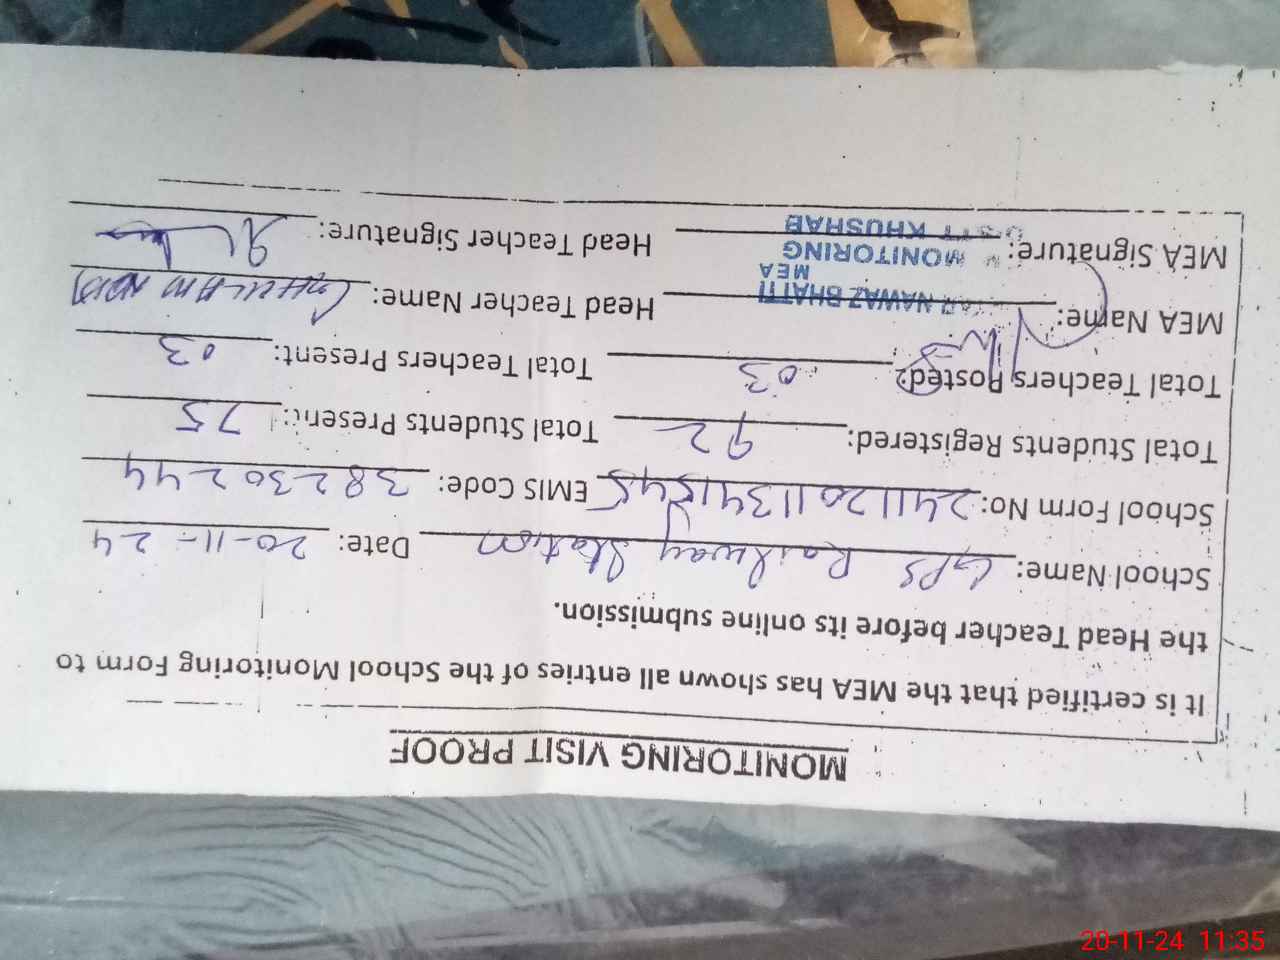 MONITORING VISIT PROOF
It is certified that the MEA has shown all entries of the School Monitoring Form to
the Head Teacher before its online submission.
School Name: GPS Railway Station Date: 20-11-24
School Form No: EMIS Code: 38230244
Total Students Registered: 92 Total Students Present: 75
Total Teachers Posted: 03 Total Teachers Present: 03
MEA Name: NAWAZ BHATTI Head Teacher Name: GHULAM
MEA
MONITORING
MEA Signature: Head Teacher Signature:
DISTT KHUSHAB
20-11-24 11:35